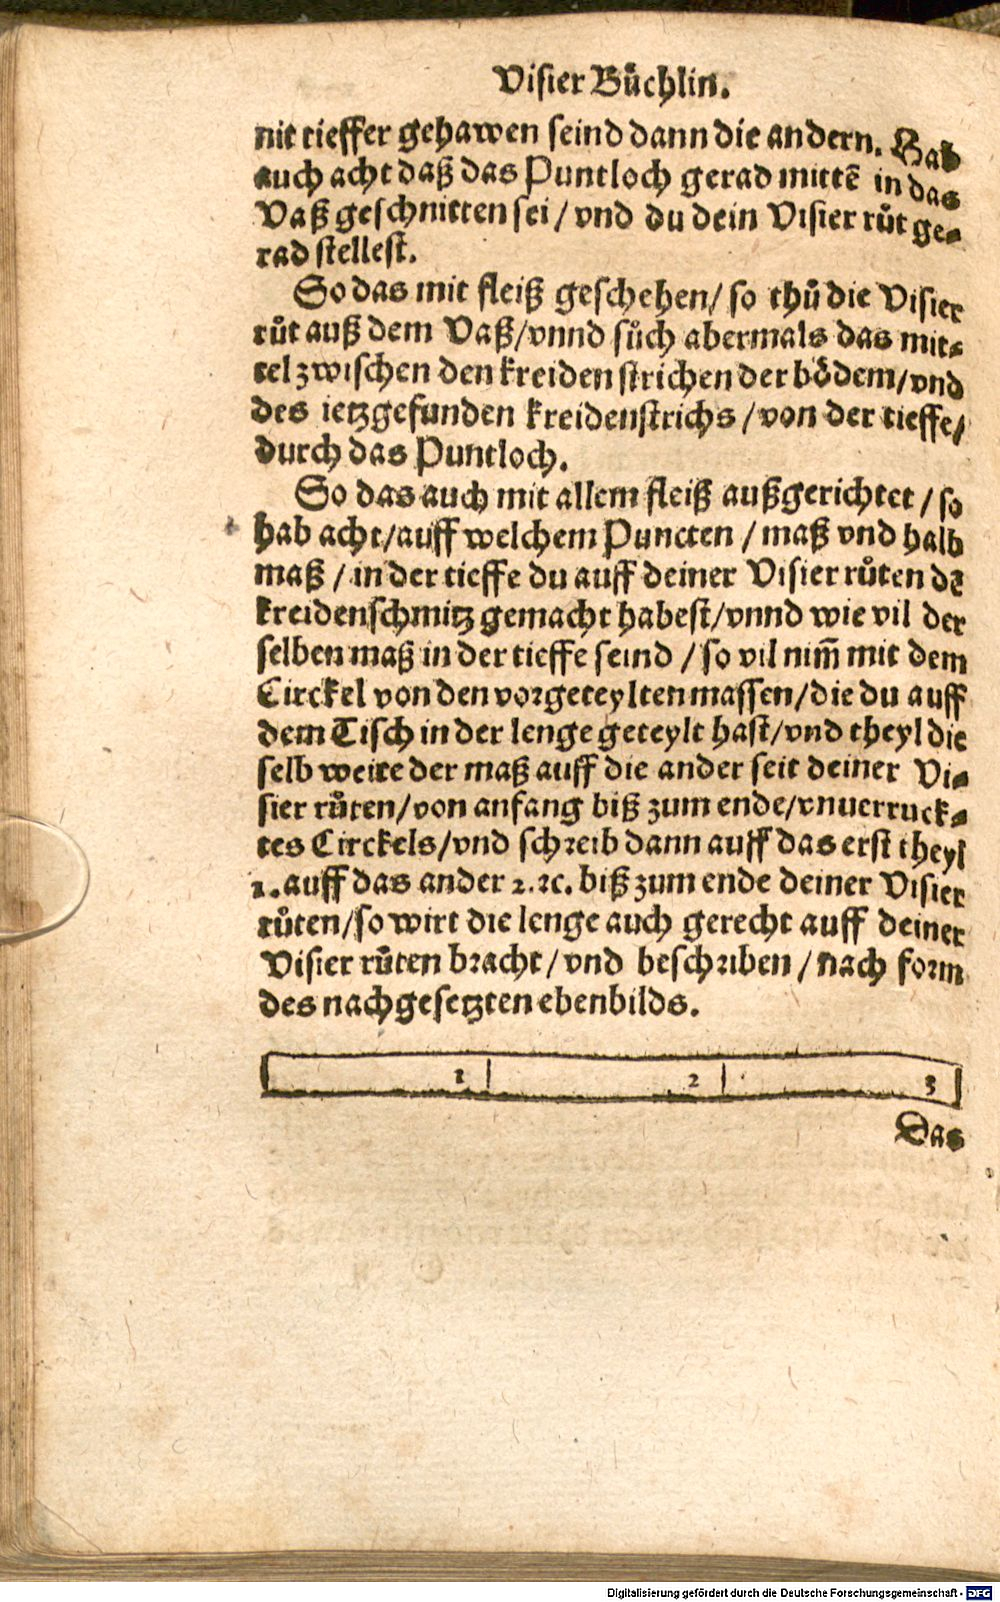 Visier Buͤchlin.
nit tieffer gehawen seind dann die andern. Hab
auch acht daß das Puntloch gerad mittē in das
Vaß geschnitten sei / vnd du dein Visier ruͦt ge-
rad stellest.
So das mit fleiß geschehen / so thuͦ die Visier
ruͦt auß dem Vaß / vnnd suͦch abermals das mit-
tel zwischen den kreiden strichen der boͤdem / vnd
des ietzgefunden kreidenstrichs / von der tieffe /
durch das Puntloch.
So das auch mit allem fleiß außgerichtet / so
hab acht / auff welchem Puncten / maß vnd halb
maß / in der tieffe du auff deiner Visier ruͦten dē
kreidenschmitz gemacht habest / vnnd wie vil der
selben maß in der tieffe seind / so vil nim̄ mit dem
Circkel von den vorgeteylten massen / die du auff
dem Tisch in der lenge geteylt hast / vnd theyl die
selb weite der maß auff die ander seit deiner Vi-
sier ruͦten / von anfang biß zum ende / vnuerruck-
tes Circkels / vnd schreib dann auff das erst theyl
1. auff das ander 2. ꝛc. biß zum ende deiner Visier
ruͦten / so wirt die lenge auch gerecht auff deiner
Visier ruͦten bracht / vnd beschriben / nach form
des nachgesetzten ebenbilds.
1 2 3
Das
Digitalisierung gefördert durch die Deutsche Forschungsgemeinschaft - DFG